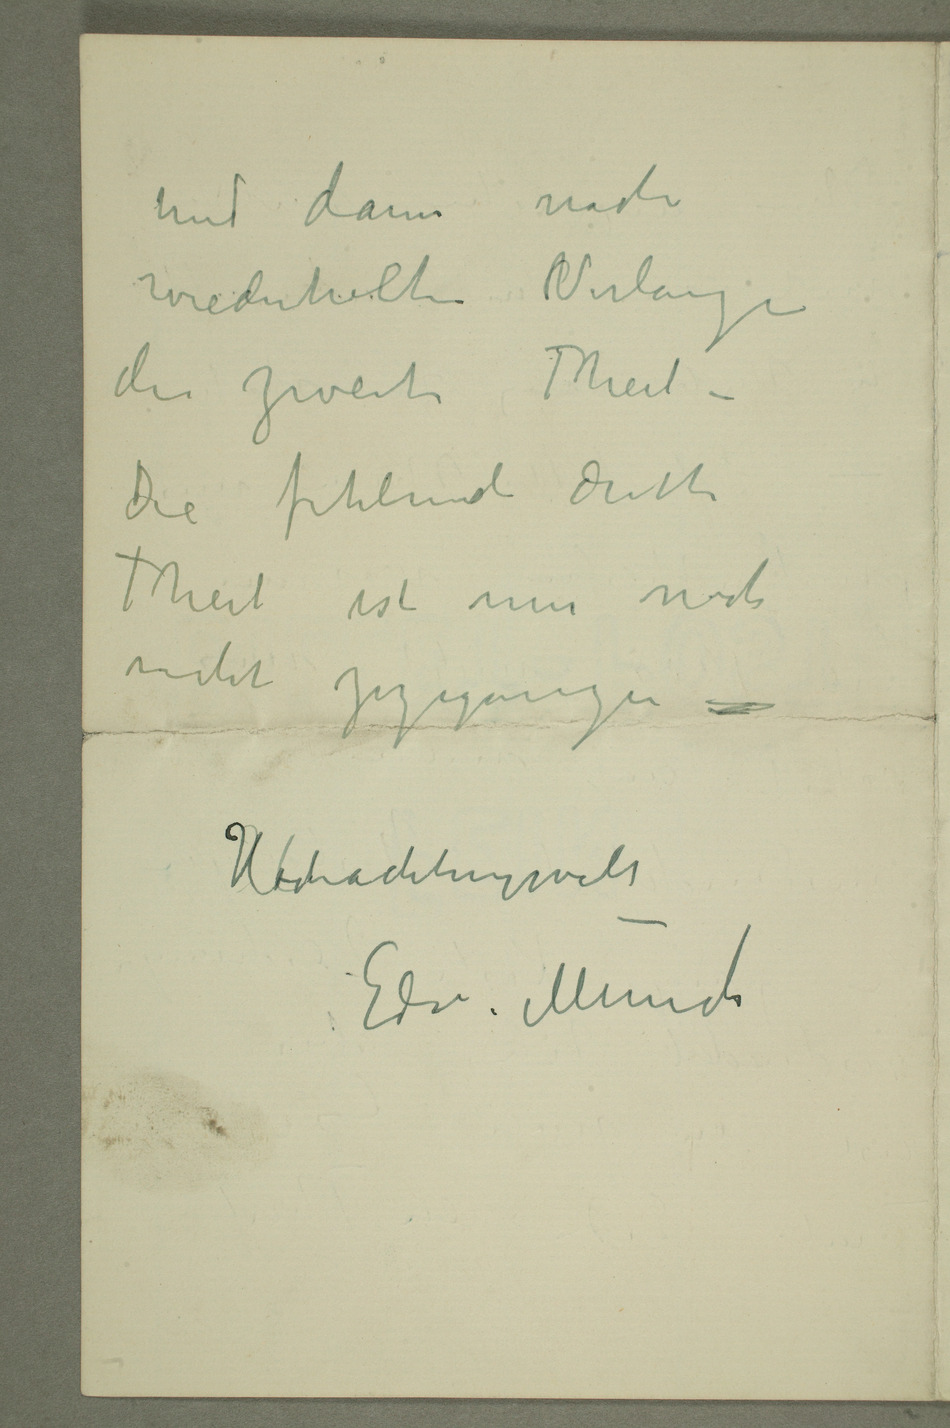 und dann nach
wiederholten Verlangen
der zweite Theil –
Die fehlende dritte
Theil ist mir noch
nicht zugegangen –
Hochachtungsvoll
Edv. Munch